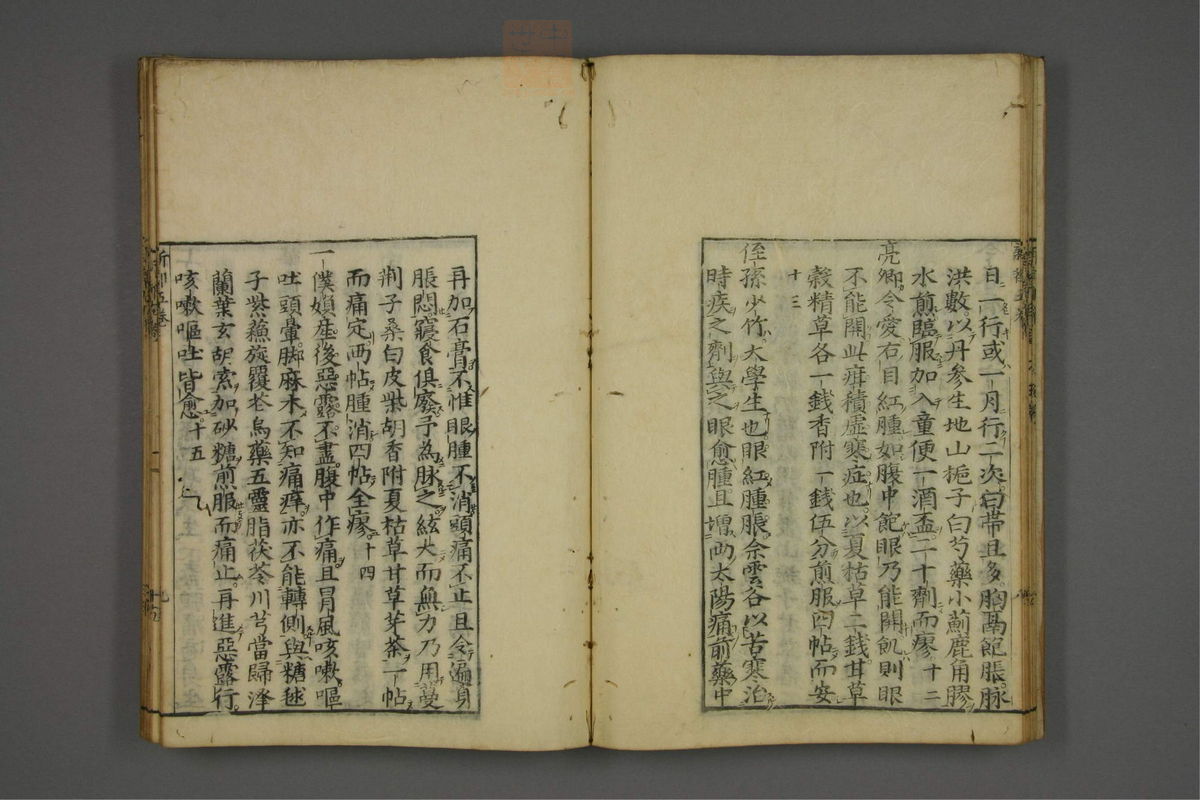 日一行或一月行二次白帶且多胸膈飽脹脉
洪數以丹參生地山梔子白芍藥小薊鹿角膠
水煎臨服加入童便一酒盃二十劑而瘳十二
亮卿令愛右目紅腫如腹中飽眼乃能開飢則眼
不能開此疳積虛寒症也以夏枯草二錢甘草
穀精草各一錢香附一錢伍分煎服四帖而安
十三
侄孫少竹太學生也眼紅腫脹余雲谷以苦寒治
時疾之劑與之眼愈腫且增兩太陽痛前藥中
再加石膏不惟眼腫不消頭痛不止且令遍身
脹悶寢食俱廢予為脉之絃大而無力乃用蔓
荆子桑白皮柴胡香附夏枯草甘草芽茶一帖
而痛定兩帖腫消四帖全瘳十四
一僕嬪産後惡露不盡腹中作痛且冒風咳嗽嘔
吐頭暈脚麻木不知痛癢亦不能轉側與糖毬
子紫蘓旋覆花烏藥五靈脂茯苓川芎當歸澤
蘭葉玄胡索加砂糖煎服而痛止再進惡露行
咳嗽嘔吐皆愈十五